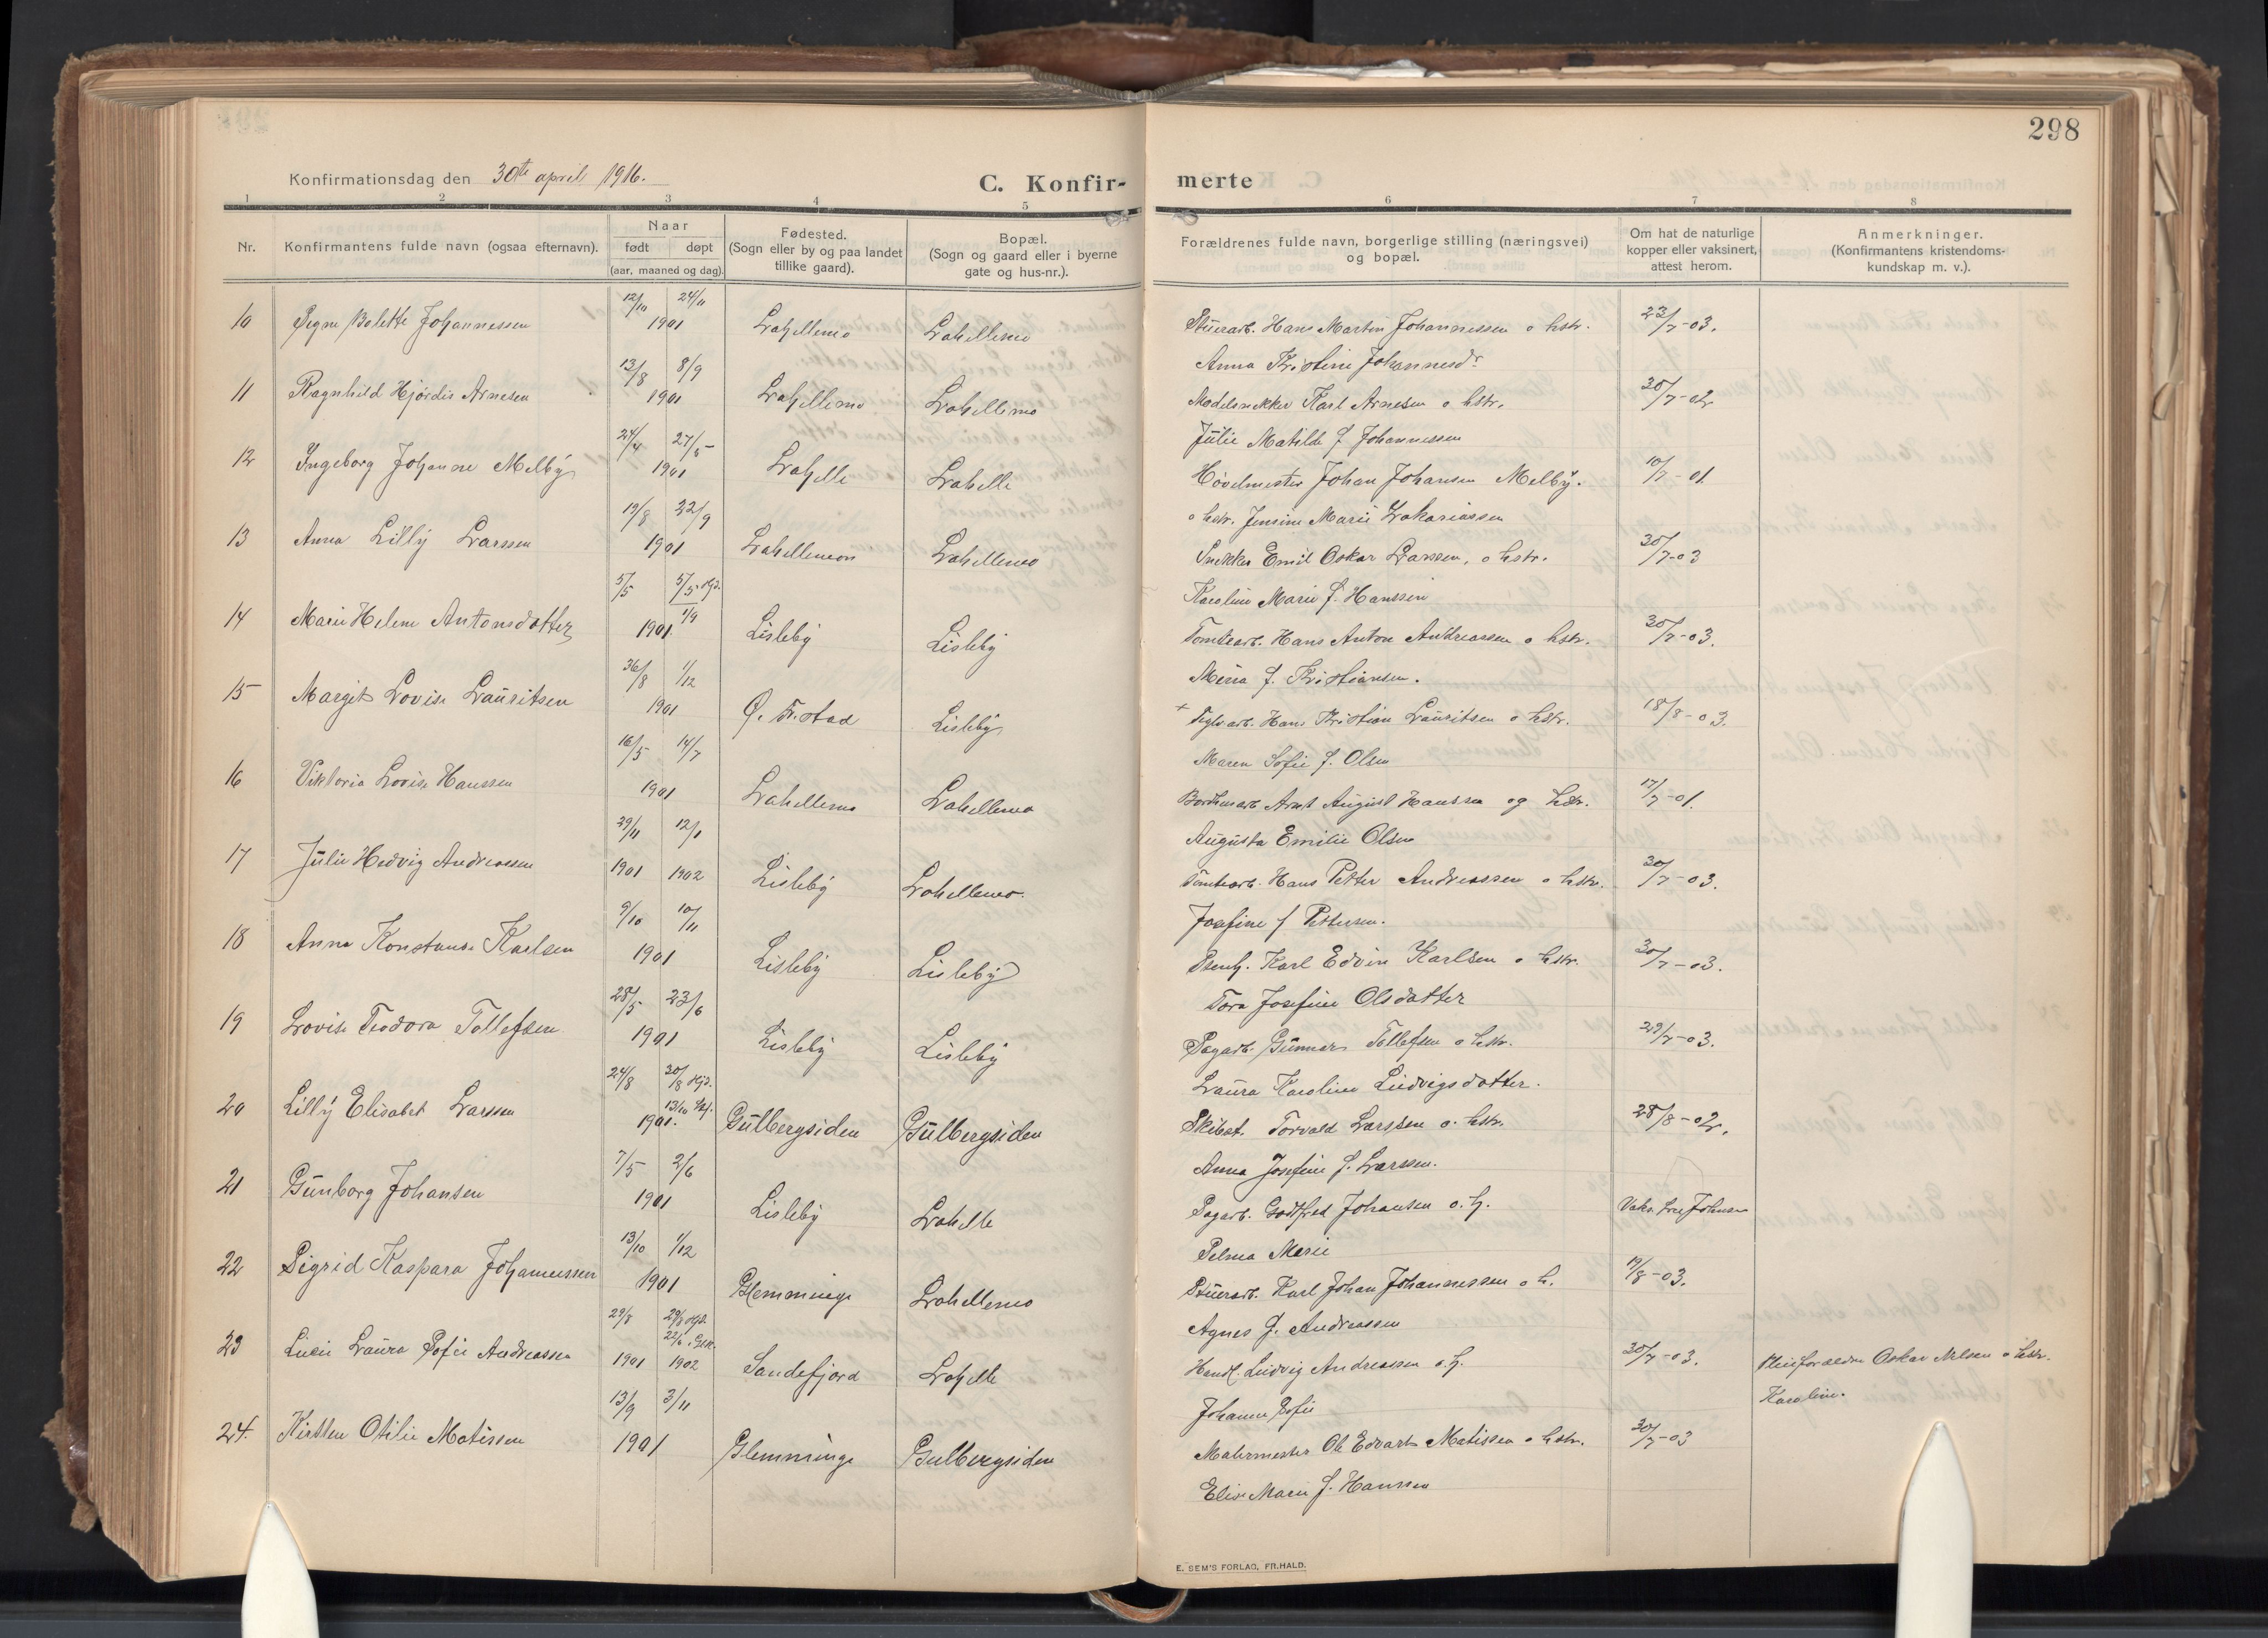 298
Konfirmationsdag den 30te april 1916.
C. Konfir-
merte
1 2 3 4 5 6 7 8
Nr.
Konfirmantens fulde navn (ogsaa efternavn).
Naar
født døpt
(aar, maaned og dag).
Fødested.
(Sogn eller by og paa landet
tillike gaard).
Bopæl.
(Sogn og gaard eller i byerne
gate og hus-nr.).
Forældrenes fulde navn, borgerlige stilling (næringsvei)
og bopæl.
Om hat de naturlige
kopper eller vaksinert,
attest herom.
Anmerkninger.
(Konfirmantens kristendoms-
kundskap m. v.).
12/10 24/11
10 Signe Bolette Johannessen 1901 Lahellemo Lahellemo Stuerarb. Hans Martin Johannessen o hstr. 23/7-03.
Anna Kristine Johannesdr
13/8 8/9
11 Ragnhild Hjørdis Arnesen 1901 Lahellemo Lahellemo Modelsnekker Karl Arnesen o hstr. 30/7-02
Julie Matilde f Johannessen
24/4 27/5
12 Ingeborg Johanne Melby 1901 Lahelle Lahelle Høvelmester Johan Johansen Melby. 10/7-01.
o hstr. Jensine Marie Zakariassen
19/8 22/9
13 Anna Lilly Larssen 1901 Lahellemoen Lahellemo Snekker Emil Oskar Larssen, o hstr. 30/7-03
Karoline Marie f. Hanssen
5/5 5/5 hjd.
1/9
14 Marie Helene Antonsdatter 1901. Lisleby Lisleby Tomtearb. Hans Anton Andreassen o hstr. 30/7-03.
Mina f. Kristiansen.
26/8 1/12
15 Margit Lovise Lauritsen 1901 Ø. Fr.stad Lisleby + Teglvarb. Hans Kristian Lauritsen o hstr. 18/8-03.
Maren Sofie f. Olsen
16/5 14/7
16 Viktoria Lovise Hanssen 1901 Lahellemo Lahellemo Bordtomtarb. Arnt August Hanssen og hstr. 17/7-01.
Augusta Emilie Olsen
29/11 12/1
17 Julie Hedvig Andreassen 1901 1902 Lisleby Lahellemo. Tomtearb. Hans Petter Andreassen o hstr. 30/7-03.
Josefine f Pettersen.
9/10 10/11
18 Anna Konstanse Karlsen 1901 Lisleby Lisleby Stenh. Karl Edvin Karlsen o hstr. 30/7-03.
Tora Josefine Olsdatter
28/5 23/6
19 Lovise Teodora Tollefsen 1901 Lisleby Lisleby Sagarb. Gunnar Tollefsen o hstr. 29/7-03.
Laura Karoline Ludvigsdatter.
24/8 30/8 hjd.
13/10
20 Lilly Elisabet Larssen 1901. Gulbergsiden Gulbergsiden Skibst. Torvald Larssen o. hstr. 28/8-02.
Anna Josefine f. Larssen.
7/5 2/6
21 Gunborg Johansen 1901 Lisleby Lahelle Sagarb. Godtfred Johansen o. h.
Selma Marie
13/10 1/12
22 Sigrid Kaspara Johannessen 1901 Glemminge Lahellemo Stuerarb. Karl Johan Johannessen o h. 19/8-03.
Agnes f. Andreassen
29/8 29/8 hjd.
22/6
23 Lucie Laura Sofie Andreassen 1901 1902 Sandefjord Lahelle Handl. Ludvig Andreassen o. h. 30/7-03. Pleieforældre Oskar Nilsen o hstr.
Johanne Sofie Karoline.
13/9 3/11
24. Kirsten Otilie Matissen 1901 Glemminge Gulbergsiden Malermester Ole Edvart Matissen o hstr. 30/7-03
Elise Marie f. Hanssen
E. SEM'S FORLAG, FR.HALD.